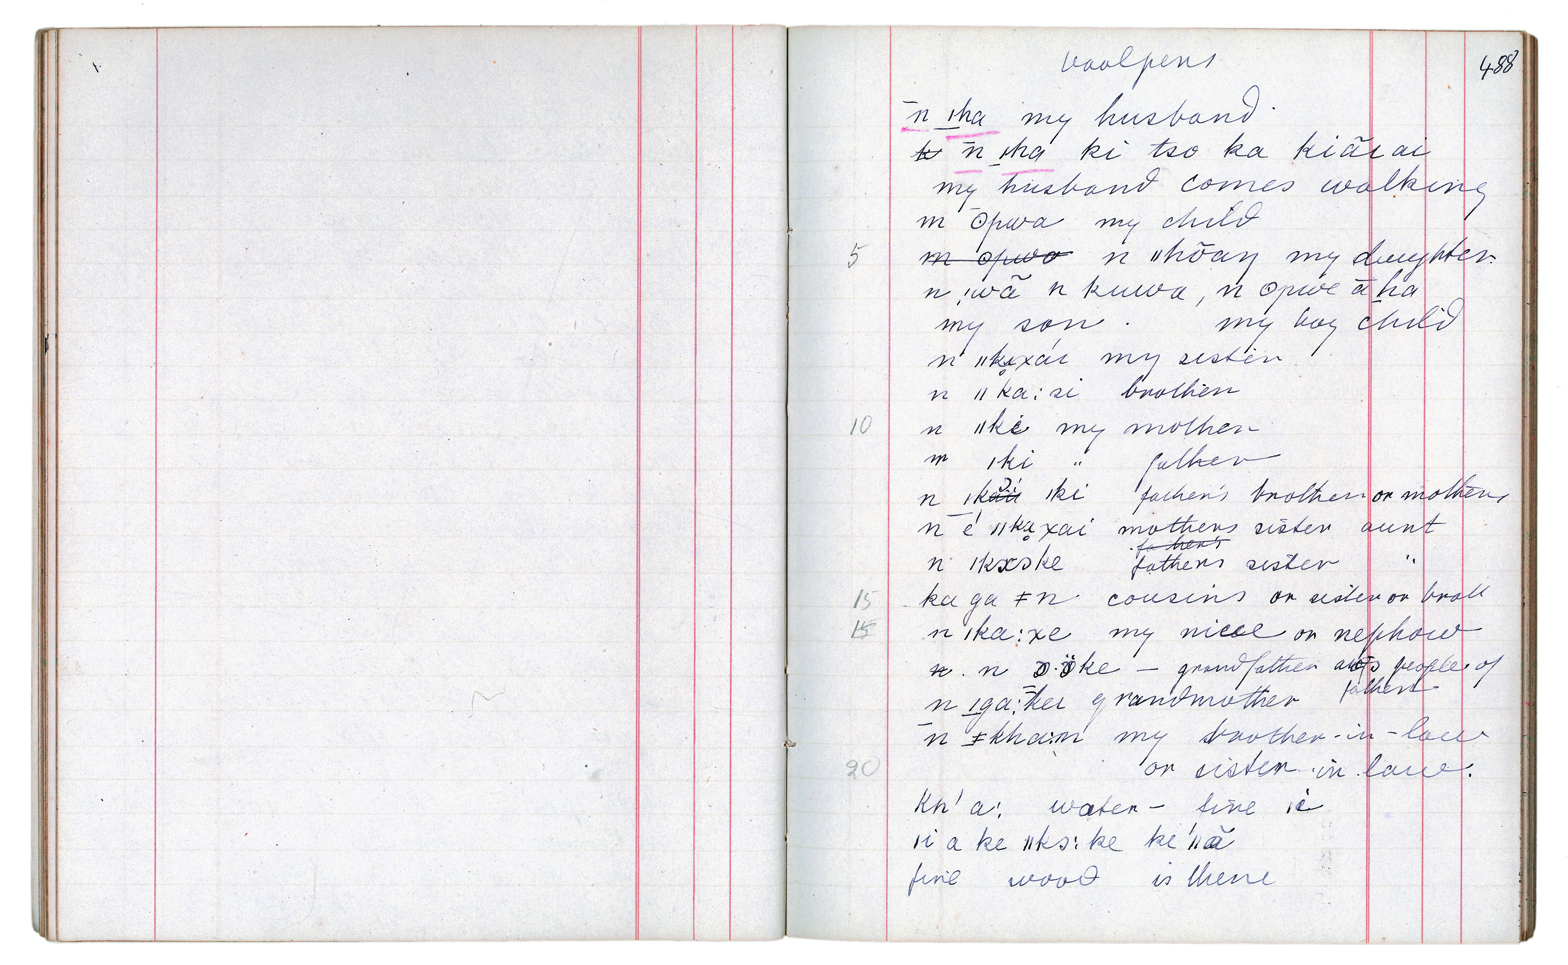 vaalpens
488
n̄ ǀha my husband.
n̄ ǀha ki tso ka kiãɛ ai
my husband comes walking
m ʘpwa my child
5 m ʘpwa n ǁhõaŋ my daughter
n ǃwã n kuwa, n ʘpwe ā ha
my son. my boy child
n ǁkḁxái my sister
n ǁka:si brother
10 n ǁke my mother
m ǀki " father
n ǀki father's brother or mothers
n é ǁkḁxai mothers sister aunt
n ǀkxɔke father's fathers sister "
15 ka ga ǂn cousins or sister or broth
15 n ǀka:xe my niece or nephew
n. n ɔ̈ke — grandfather also people of
fathers
n ǀga:kei grandmother
n̄ ǂkha:n my brother-in-law
20 or sister-in-law.
Kh'a: water – fire iċ
ǀi a ke ǁkɔ:ke ke'ǁã
fire wood is there